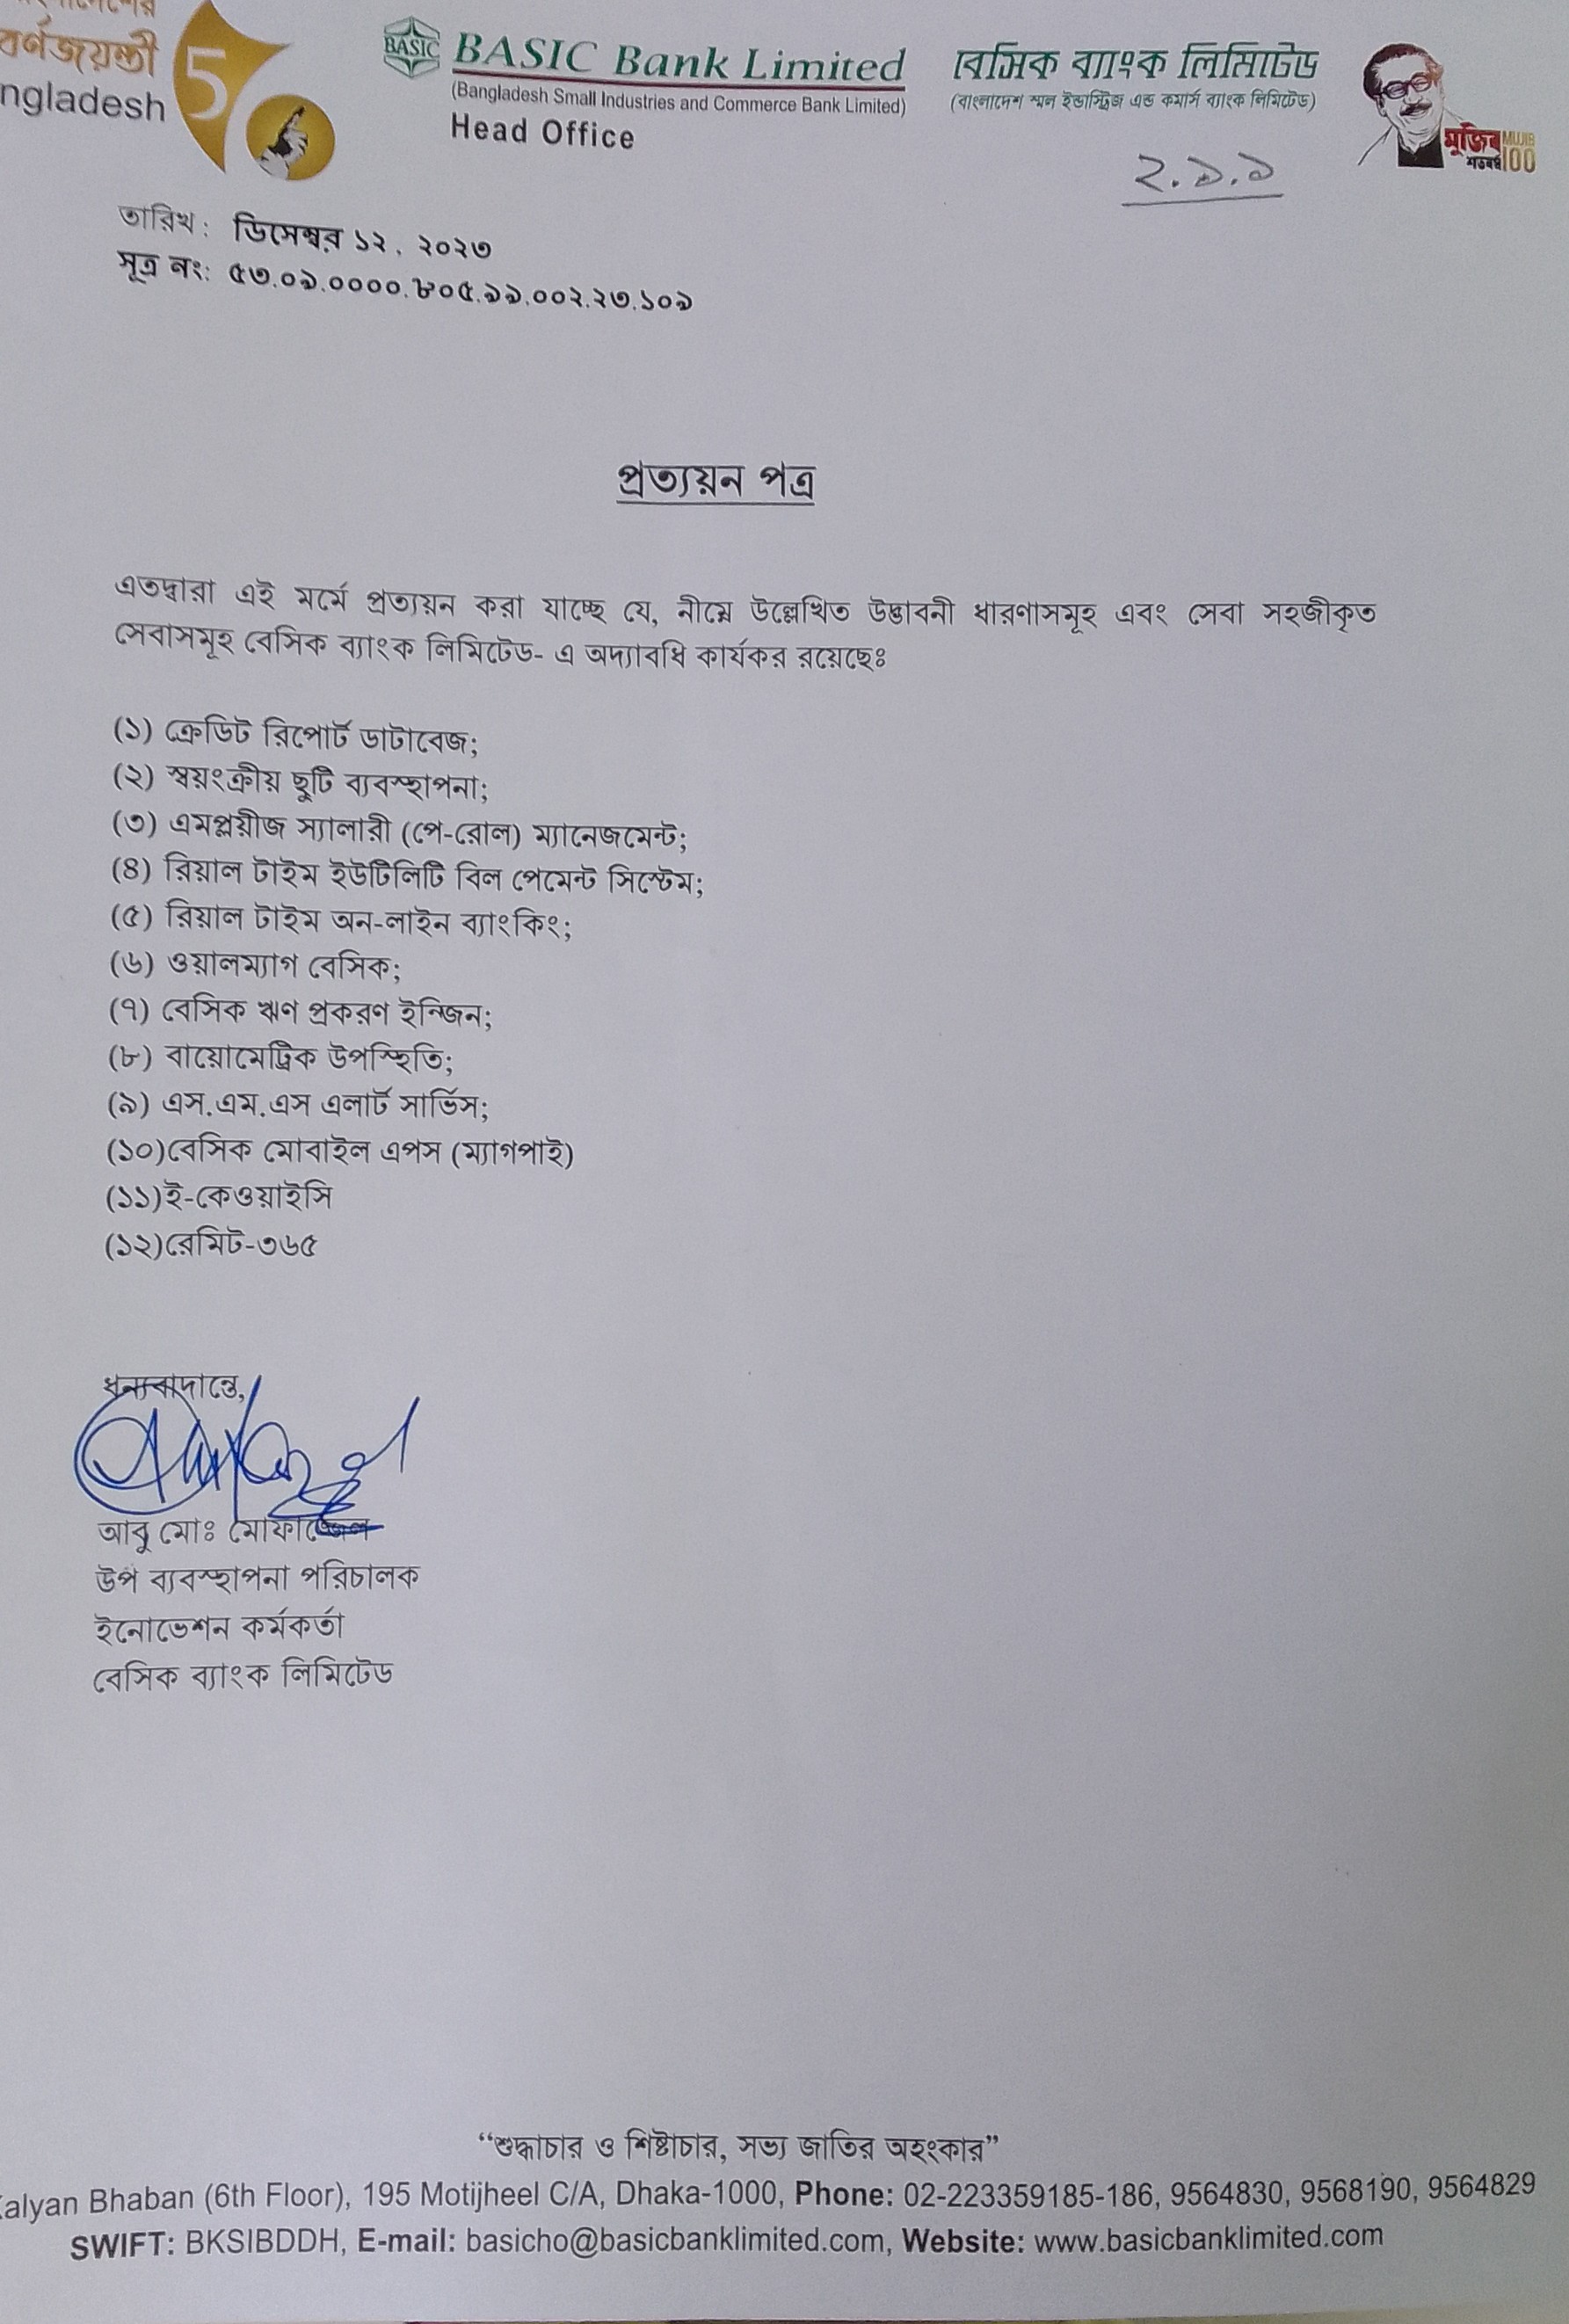 বর্ণজয়ন্তী
ngladesh
50
BASIC
BASIC Bank Limited
(Bangladesh Small Industries and Commerce Bank Limited)
Head Office
বেসিক ব্যাংক লিমিটেড
(বাংলাদেশ স্মল ইন্ডাস্ট্রিজ এন্ড কমার্স ব্যাংক লিমিটেড)
মুজিব MUJIB
শতবর্ষ 100
২.১.১
তারিখ : ডিসেম্বর ১২, ২০২৩
সূত্র নং: ৫৩.০৯.০০০০.৮০৫.৯৯.০০২.২৩.১০৯
প্রত্যয়ন পত্র
এতদ্বারা এই মর্মে প্রত্যয়ন করা যাচ্ছে যে, নীম্নে উল্লেখিত উদ্ভাবনী ধারণাসমূহ এবং সেবা সহজীকৃত
সেবাসমূহ বেসিক ব্যাংক লিমিটেড- এ অদ্যাবধি কার্যকর রয়েছেঃ
(১) ক্রেডিট রিপোর্ট ডাটাবেজ;
(২) স্বয়ংক্রীয় ছুটি ব্যবস্হাপনা;
(৩) এমপ্লয়ীজ স্যালারী (পে-রোল) ম্যানেজমেন্ট;
(৪) রিয়াল টাইম ইউটিলিটি বিল পেমেন্ট সিস্টেম;
(৫) রিয়াল টাইম অন-লাইন ব্যাংকিং;
(৬) ওয়ালম্যাগ বেসিক;
(৭) বেসিক ঋণ প্রকরণ ইন্জিন;
(৮) বায়োমেট্রিক উপস্হিতি;
(৯) এস.এম.এস এলার্ট সার্ভিস;
(১০)বেসিক মোবাইল এপস (ম্যাগপাই)
(১১)ই-কেওয়াইসি
(১২)রেমিট-৩৬৫
ধন্যবাদান্তে,
আবু মোঃ মোফাজ্জেল
উপ ব্যবস্হাপনা পরিচালক
ইনোভেশন কর্মকর্তা
বেসিক ব্যাংক লিমিটেড
“শুদ্ধাচার ও শিষ্টাচার, সভ্য জাতির অহংকার”
alyan Bhaban (6th Floor), 195 Motijheel C/A, Dhaka-1000, Phone: 02-223359185-186, 9564830, 9568190, 9564829
SWIFT: BKSIBDDH, E-mail: basicho@basicbanklimited.com, Website: www.basicbanklimited.com